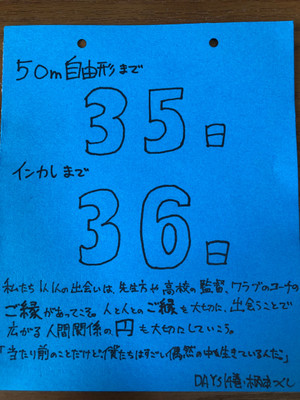 50m自由形まで
35日
インカレまで
36日
私たち1人1人の出会いは、先生方や高校の監督、クラブのコーチの
ご縁があってこそ。人と人とのご縁を大切に、出会うことで
広がる人間関係の円も大切にしていこう。
「当たり前のことだけど、僕たちはすごい偶然の中を生きているんだ」
DAYS 1巻・柄本つくし